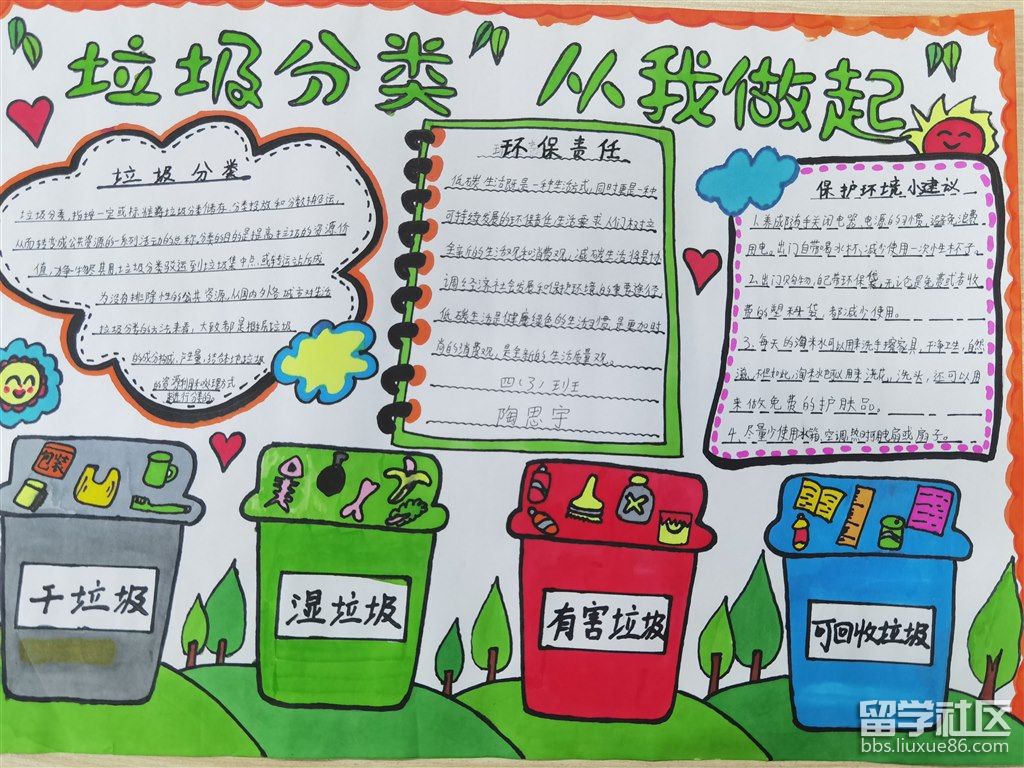 垃圾分类 从我做起
垃圾分类
垃圾分类,指按一定或标准将垃圾分类储存、分类投放和分类搬运,
从而转变成公共资源的一系列活动的总称,分类的目的是提高垃圾的资源价
值,
为没有排除性的公共资源,从国内外各城市对生活
垃圾分类的方法来看,大致都是根据垃圾
的成分构成、产生量,结合本地垃圾
的资源利用和处理方式
来进行分类的。
环保责任
低碳生活既是一种生活方式,同时更是一种
可持续发展的环保责任,生活要求人们树立
全新的生活观和消费观,减碳生活将是协
调经济社会发展和保护环境的重要途径,
低碳生活是健康绿色的生活习惯,是更加时
尚的消费观,是全新的生活质量观。
四(3)班
陶思宇
保护环境小建议
1.养成随手关闭电器、电源的习惯,避免浪费
用电。出门自带喝水杯,减少使用一次性杯子。
2.出门购物,自己带环保袋,无论是免费或者收
费的塑料袋,都减少使用。
3、每天的淘米水可以用来洗手擦家具,干净卫生,自然
滋。不但如此,淘米水也可以用来浇花,洗头,还可以用
来做免费的护肤品。
4、尽量少使用冰箱、空调,热时可用电扇或扇子。
包装
干垃圾
湿垃圾
有害垃圾
可回收垃圾
留学社区
bbs.liuxue86.com